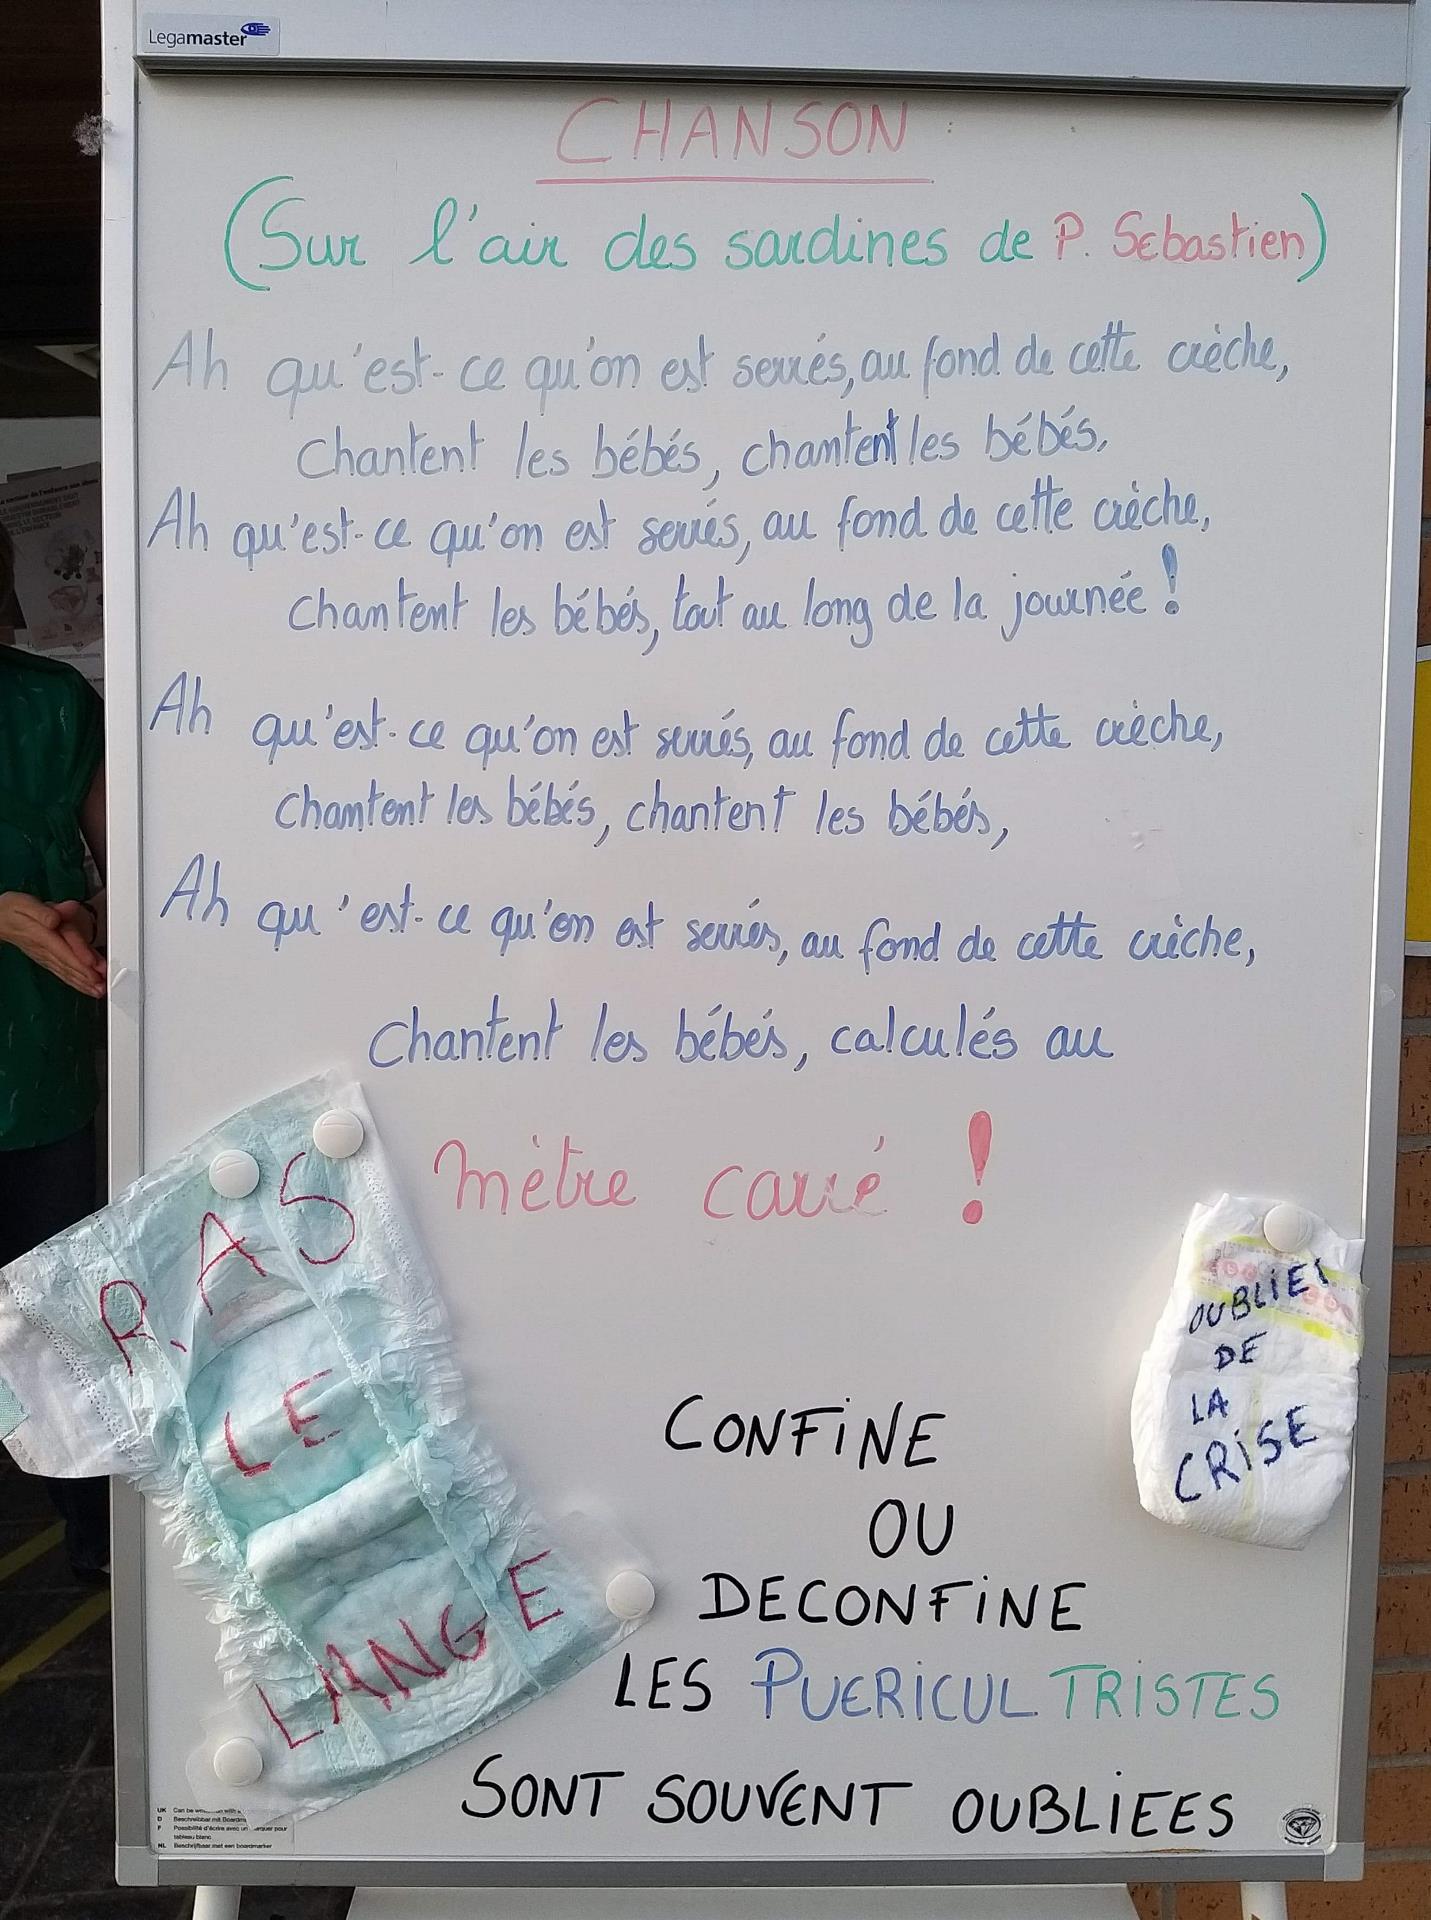 Legamaster
CHANSON :
(Sur l'air des sardines de P. Sebastien)
Ah qu'est-ce qu'on est serrés, au fond de cette crèche,
Chantent les bébés, chantent les bébés,
Ah qu'est-ce qu'on est serrés, au fond de cette crèche,
Chantent les bébés, tout au long de la journée !
Ah qu'est-ce qu'on est serrés, au fond de cette crèche,
Chantent les bébés, chantent les bébés,
Ah qu'est-ce qu'on est serrés, au fond de cette crèche,
Chantent les bébés, calculés au
mètre carré !
RAS
LE
LANGE
OUBLIES
DE
LA
CRISE
CONFINE
OU
DECONFINE
LES PUERICULTRISTES
SONT SOUVENT OUBLIEES
UK Can be
D Beschreibbar mit
F Possibilité d'écrire avec un pour
tableau blanc
NL Beschrijfbaar met een boardmarker